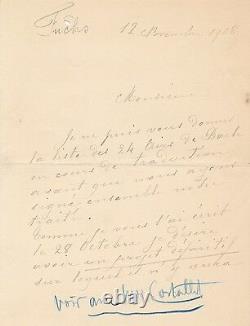 Fuchs
12 Novembre 1908
Monsieur
Je ne puis vous donner
la liste des 24 Airs de Bach
en cours de traduction
avant que nous ayons
signé ensemble notre
traité.
Comme je vous l'ai écrit
le 29 Octobre je désire
avoir un projet définitif
sur lequel il n'y aura
voir